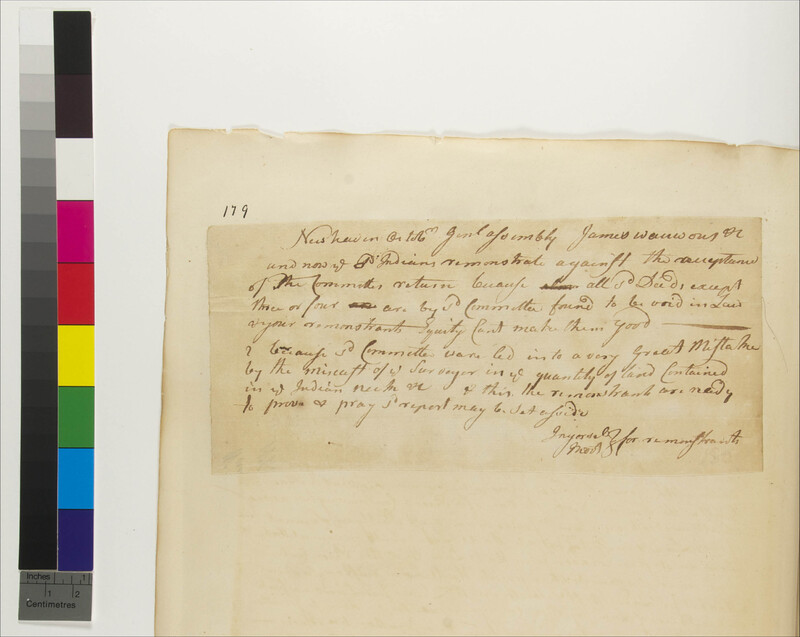 179
New haven Octobr Genl assembly James wauwous &c
and now ye sd Indians remonstrate against the acceptance
of the Committes return because all sd Deeds except
three or four are by sd Committee found to be void in Law
& your remonstrants Equity Cant make them good
2 because sd Committee ware led into a very Great Mistake
by the miscast of ye Surveyor in ye quantity of land Contained
in ye Indian neck &c & this the remonstrants are ready
to prove & pray sd report may be set aside
Ingorsel
for remonstrants
Inches 1 1
1 2
Centimetres